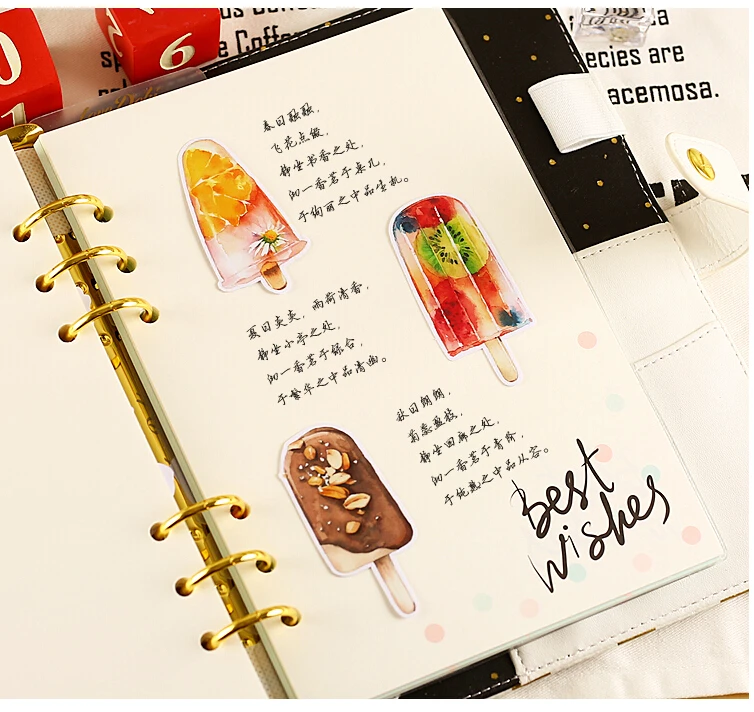 0
1
6
us Coffe
e Coffe
sp
ecies are
acemosa.
春日融融，
飞花点儆，
静坐书香之处，
沏一香茗于桌几，
于绚丽之中品生机。
夏日炎炎，雨荷清香，
静坐小亭之处，
沏一香茗于绿合，
于繁华之中品清幽。
秋日朗朗，
菊蕊盈枝，
静坐回廊之处，
沏一香茗于青阶，
于纯熟之中品从容。
Best
wishes